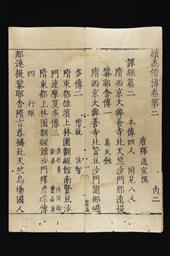 續高僧傳卷第二
內二
唐釋道宣撰
譯經篇二 本傳四人 附見八人
隋西京大興善寺北天竺沙門那連提
黎耶舍傳一 萬天懿
隋西京大興善寺北賢豆沙門闍那崛
多傳二 僧就 法智
隋東都雒濱上林園翻經館南賢豆沙
門達摩笈多傳三
隋東都上林園翻經館沙門釋彥琮傳
四 行矩
那連提黎耶舍隋言尊稱北天竺烏場國人